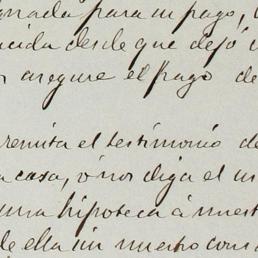 gnada para su pago, 
ucida desde que dejó
asegure el pago de
remita el testimonio de
a casa, ó nos diga el
una hipoteca á nuest
de ella sin nuestro cons